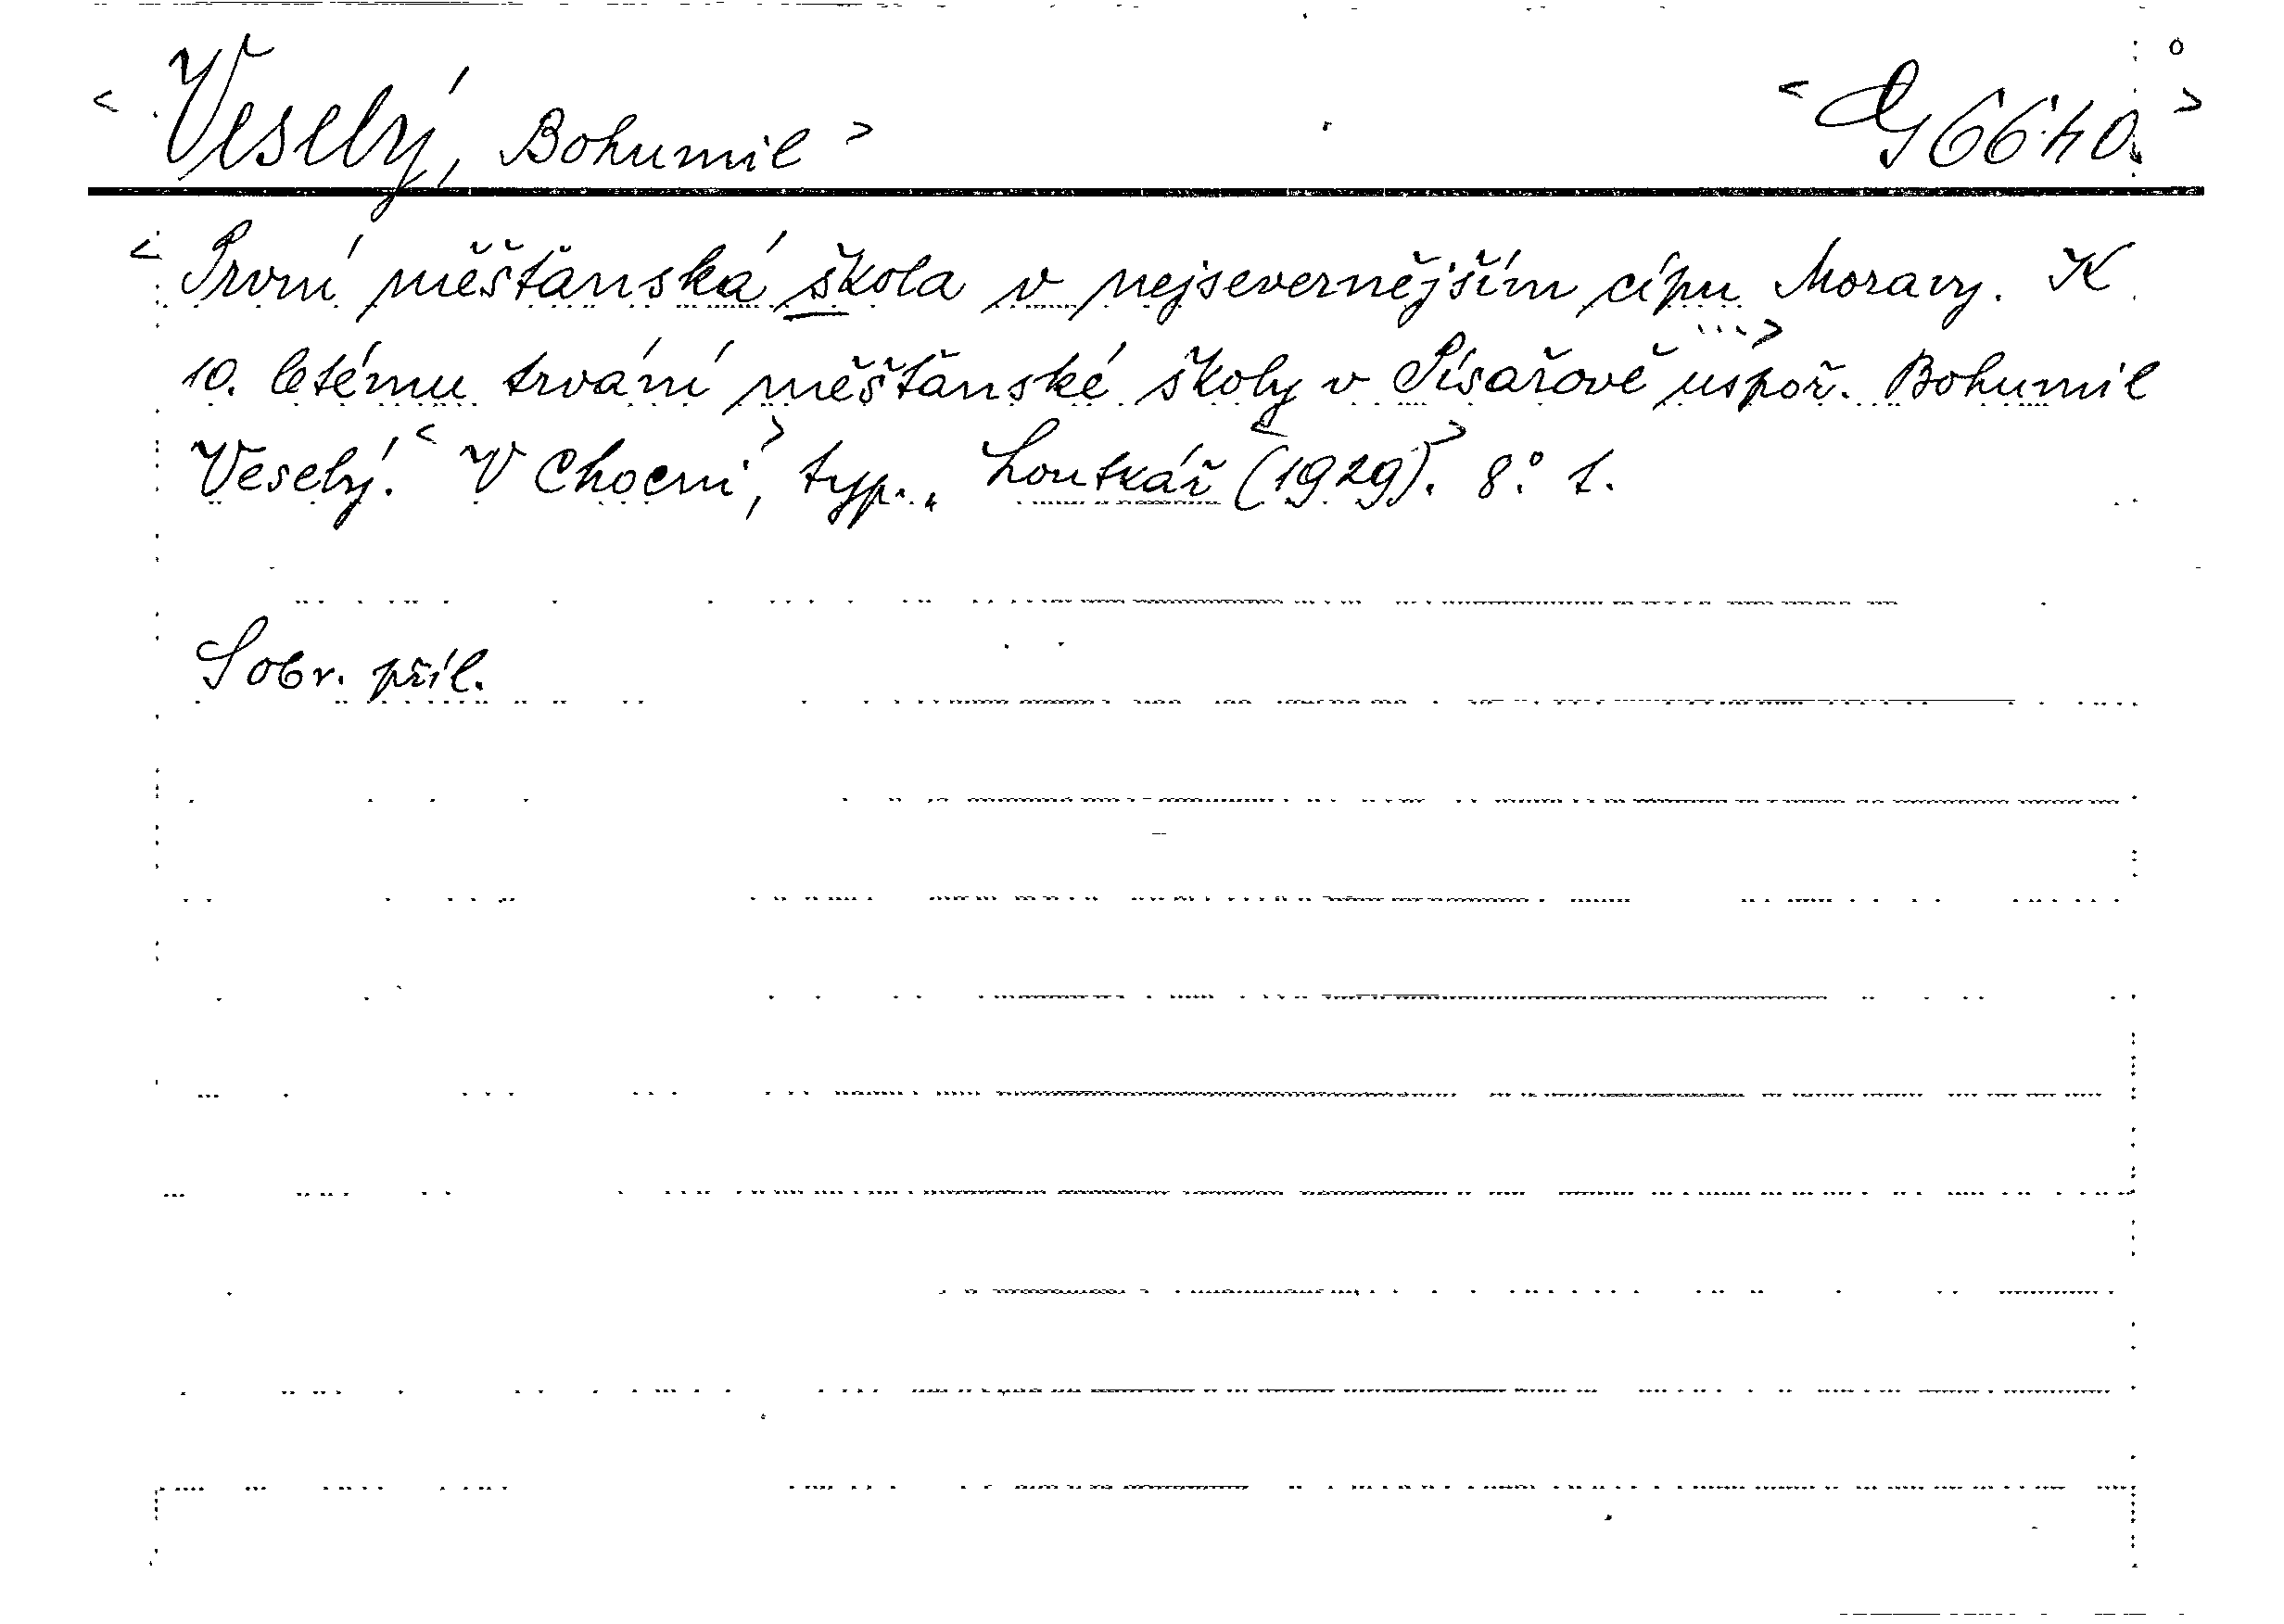 < Veselý, Bohumil > < G 6640. >
< První měšťanská škola v nejsevernějším cípu Moravy. K
10. letému trvání měšťanské školy v Písařově ...> uspoř. Bohumil
Veselý. < V Chocni, > typ. Loutkář < (1929). > 8° 1.
S obr. příl.